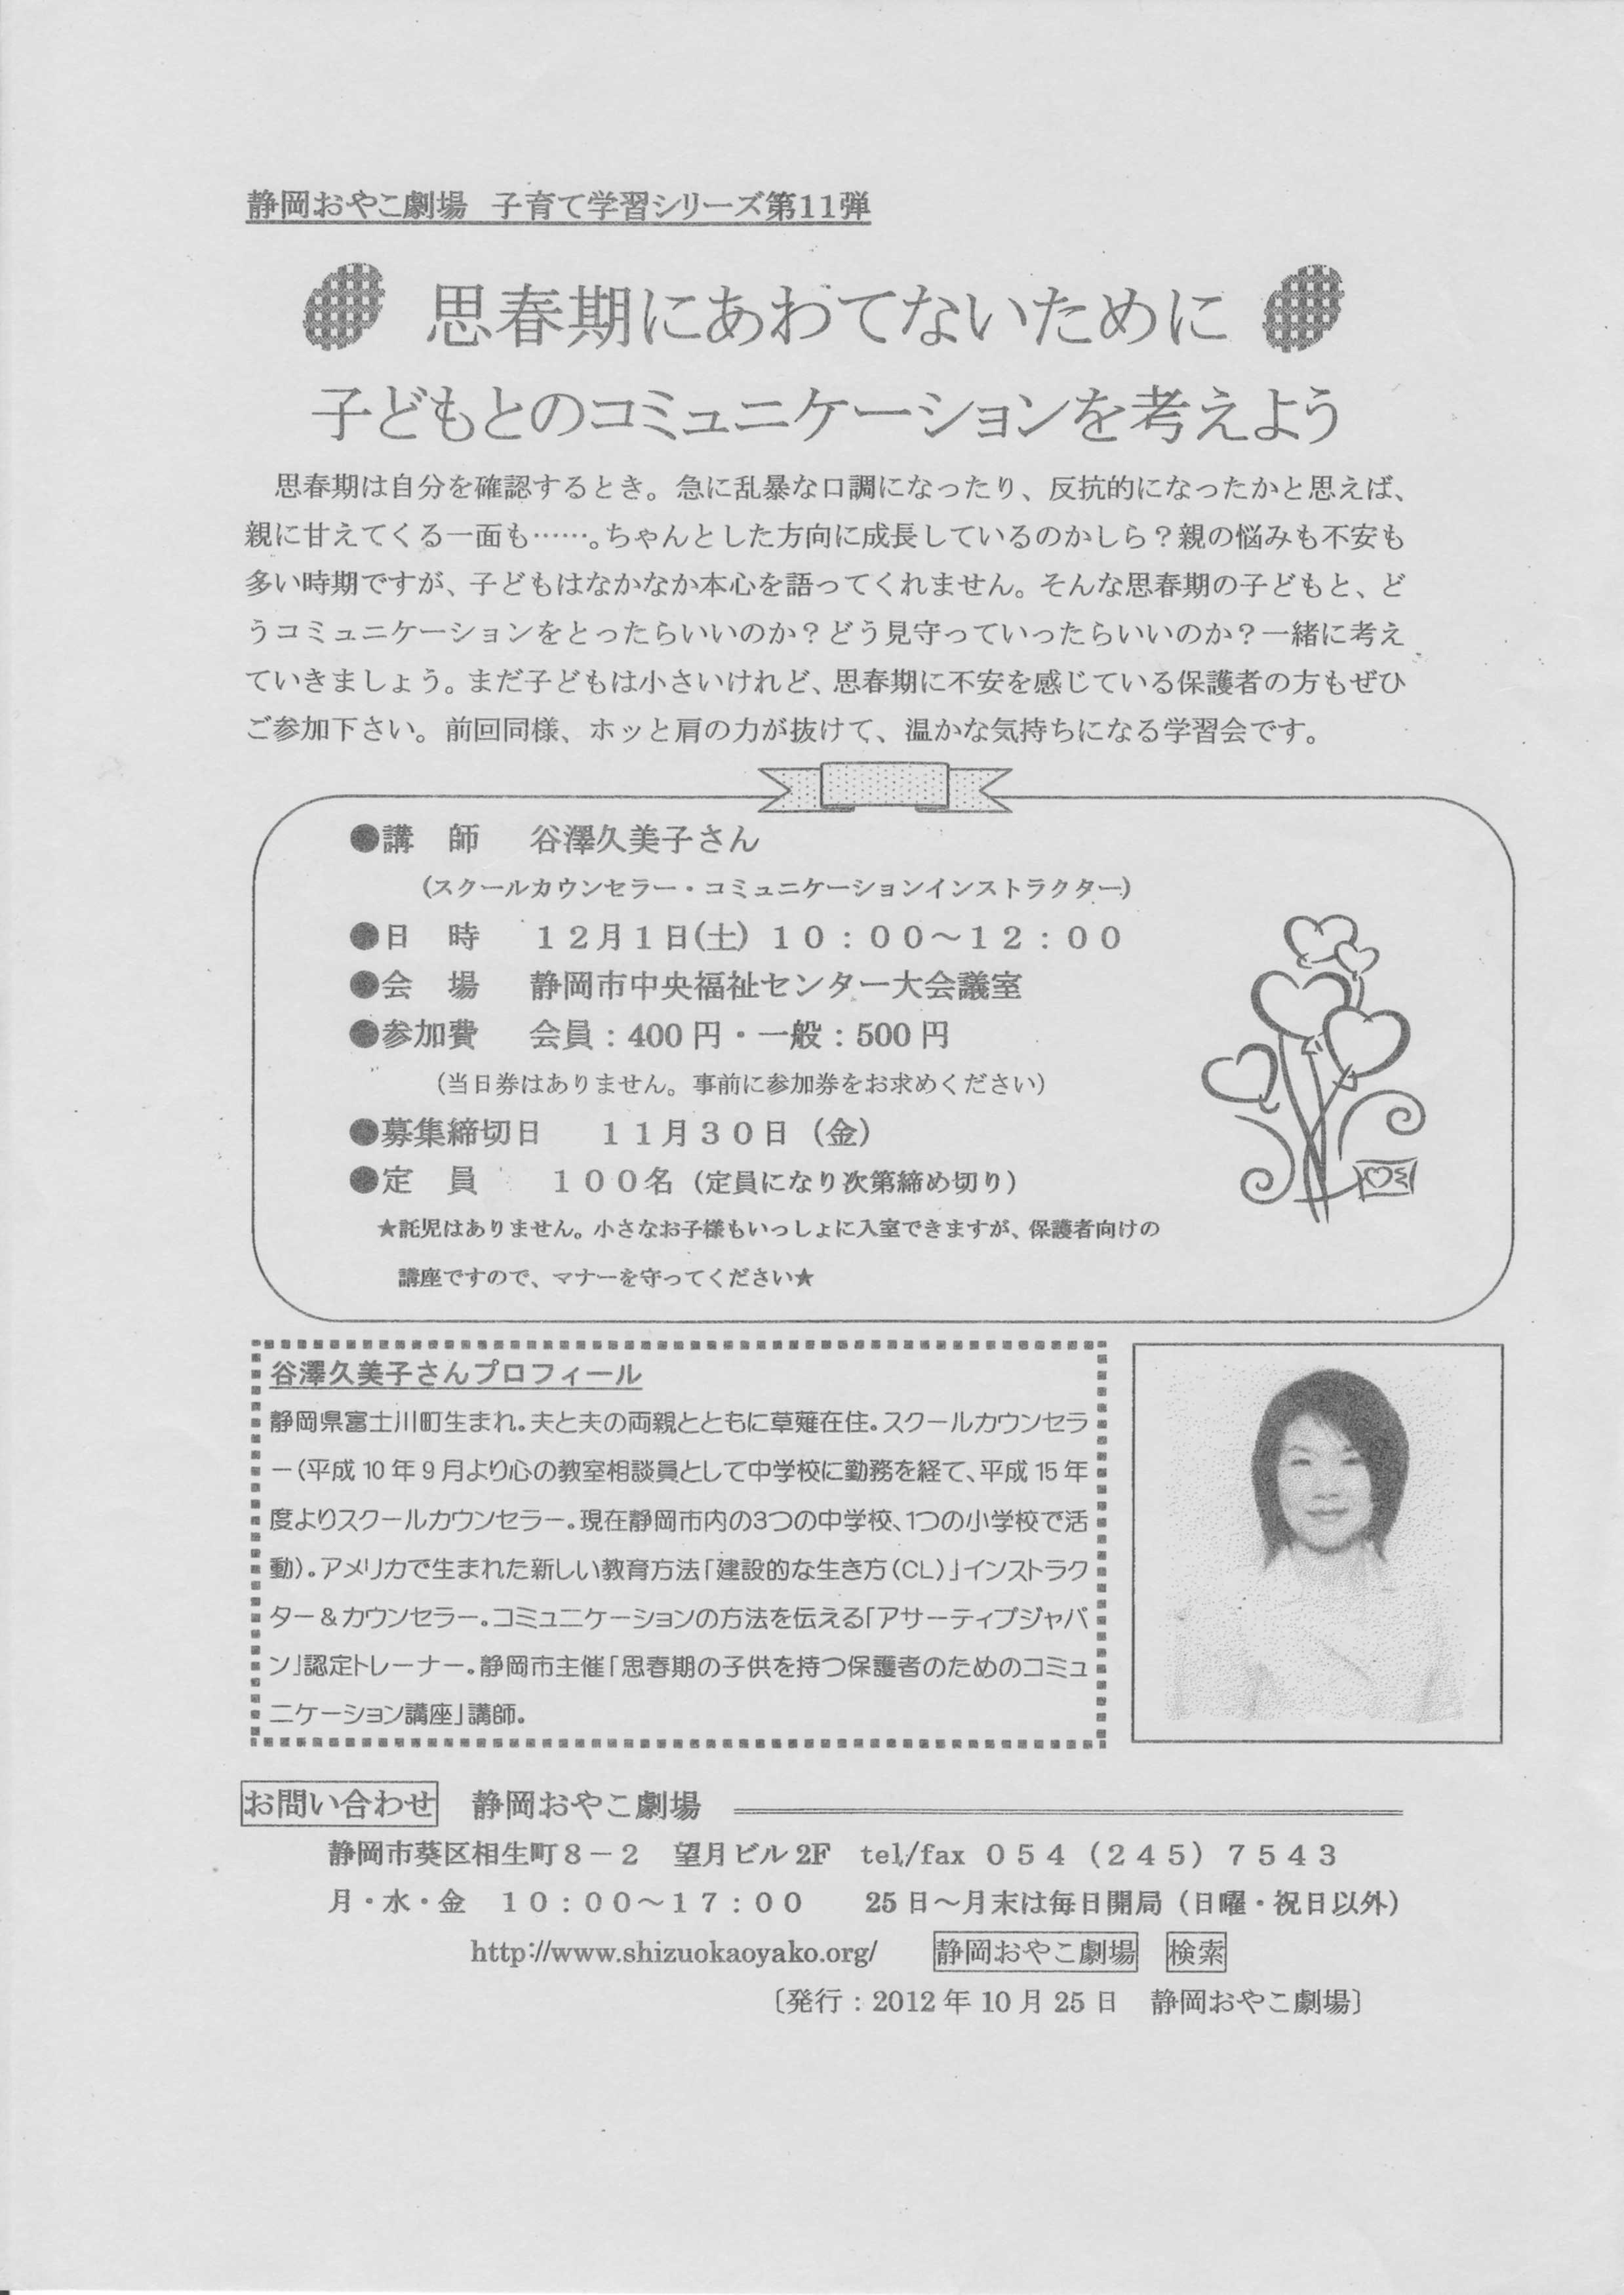 静岡おやこ劇場　子育て学習シリーズ第11弾
思春期にあわてないために
子どもとのコミュニケーションを考えよう
思春期は自分を確認するとき。急に乱暴な口調になったり、反抗的になったかと思えば、
親に甘えてくる一面も……。ちゃんとした方向に成長しているのかしら？親の悩みも不安も
多い時期ですが、子どもはなかなか本心を語ってくれません。そんな思春期の子どもと、ど
うコミュニケーションをとったらいいのか？どう見守っていったらいいのか？一緒に考え
ていきましょう。まだ子どもは小さいけれど、思春期に不安を感じている保護者の方もぜひ
ご参加下さい。前回同様、ホッと肩の力が抜けて、温かな気持ちになる学習会です。
●講　師　谷澤久美子さん
（スクールカウンセラー・コミュニケーションインストラクター）
●日　時　１２月１日(土) １０：００～１２：００
●会　場　静岡市中央福祉センター大会議室
●参加費　会員：400 円・一般：500 円
（当日券はありません。事前に参加券をお求めください）
●募集締切日　１１月３０日（金）
●定　員　１００名（定員になり次第締め切り）
★託児はありません。小さなお子様もいっしょに入室できますが、保護者向けの
講座ですので、マナーを守ってください★
谷澤久美子さんプロフィール
静岡県富士川町生まれ。夫と夫の両親とともに草薙在住。スクールカウンセラ
ー（平成 10 年 9 月より心の教室相談員として中学校に勤務を経て、平成 15 年
度よりスクールカウンセラー。現在静岡市内の3つの中学校、1つの小学校で活
動）。アメリカで生まれた新しい教育方法「建設的な生き方（CL）」インストラク
ター＆カウンセラー。コミュニケーションの方法を伝える「アサーティブジャパ
ン」認定トレーナー。静岡市主催「思春期の子供を持つ保護者のためのコミュ
ニケーション講座」講師。
お問い合わせ　静岡おやこ劇場
静岡市葵区相生町８－２　望月ビル 2F　tel/fax ０５４（２４５）７５４３
月・水・金　１０：００～１７：００　25 日～月末は毎日開局（日曜・祝日以外）
http://www.shizuokaoyako.org/　静岡おやこ劇場　検索
〔発行：2012 年 10 月 25 日　静岡おやこ劇場〕